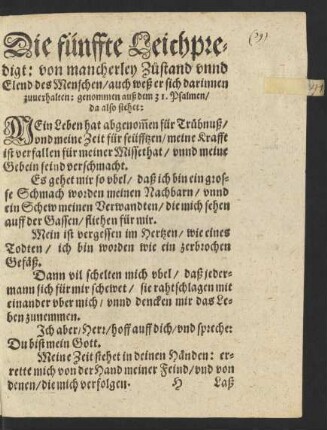 (29)
Die fünffte Leichpre-
digt: von mancherley Züstand vnnd
Elend des Menschen/ auch weß er sich darinnen
zuuerhalten: genommen auß dem 31. Psalmen/
da also stehet:
MEin Leben hat abgenom̃en für Trübnuß/
vnd meine Zeit für seüfftzen/ meine Krafft
ist verfallen für meiner Missethat/ vnnd meine
Gebein seind verschmacht.
Es gehet mir so vbel/ daß ich bin ein gros-
se Schmach worden meinen Nachbarn/ vnnd
ein Schew meinen Verwandten/ die mich sehen
auff der Gassen/ fliehen für mir.
Mein ist vergessen im Hertzen/ wie eines
Todten/ ich bin worden wie ein zerbrochen
Gefäß.
Dann vil schelten mich vbel/ daß jeder-
mann sich für mir schewet/ sie rahtschlagen mit
einander vber mich/ vnnd dencken mir das Le-
ben zunemmen.
Ich aber/ Herr/ hoff auff dich/ vnd spreche:
Du bist mein Gott.
Meine Zeit stehet in deinen Händen: er-
rette mich von der Hand meiner Feind/ vnd von
denen/ die mich verfolgen.
H Laß